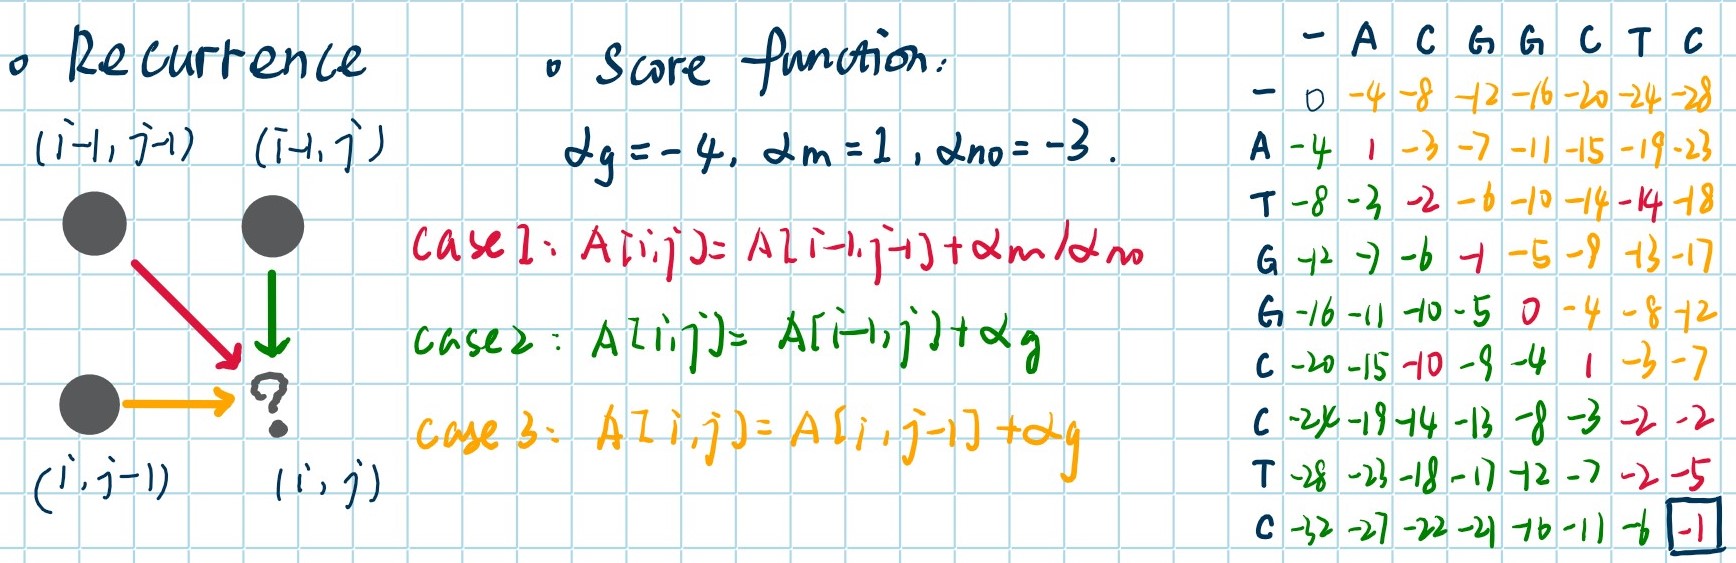 • Recurrence
(i-1, j-1) (i-1, j)
?
(i, j-1) (i, j)
• Score function:
αg = -4, αm = 1, αno = -3.
case1: A[i,j] = A[i-1,j-1] + αm/αno
case2: A[i,j] = A[i-1,j] + αg
case 3: A[i,j] = A[i,j-1] + αg
- A C G G C T C
- 0 -4 -8 -12 -16 -20 -24 -28
A -4 1 -3 -7 -11 -15 -19 -23
T -8 -3 -2 -6 -10 -14 -14 -18
G -12 -7 -6 -1 -5 -9 -13 -17
G -16 -11 -10 -5 0 -4 -8 -12
C -20 -15 -10 -9 -4 1 -3 -7
C -24 -19 -14 -13 -8 -3 -2 -2
T -28 -23 -18 -17 -12 -7 -2 -5
C -32 -27 -22 -21 -16 -11 -6 -1